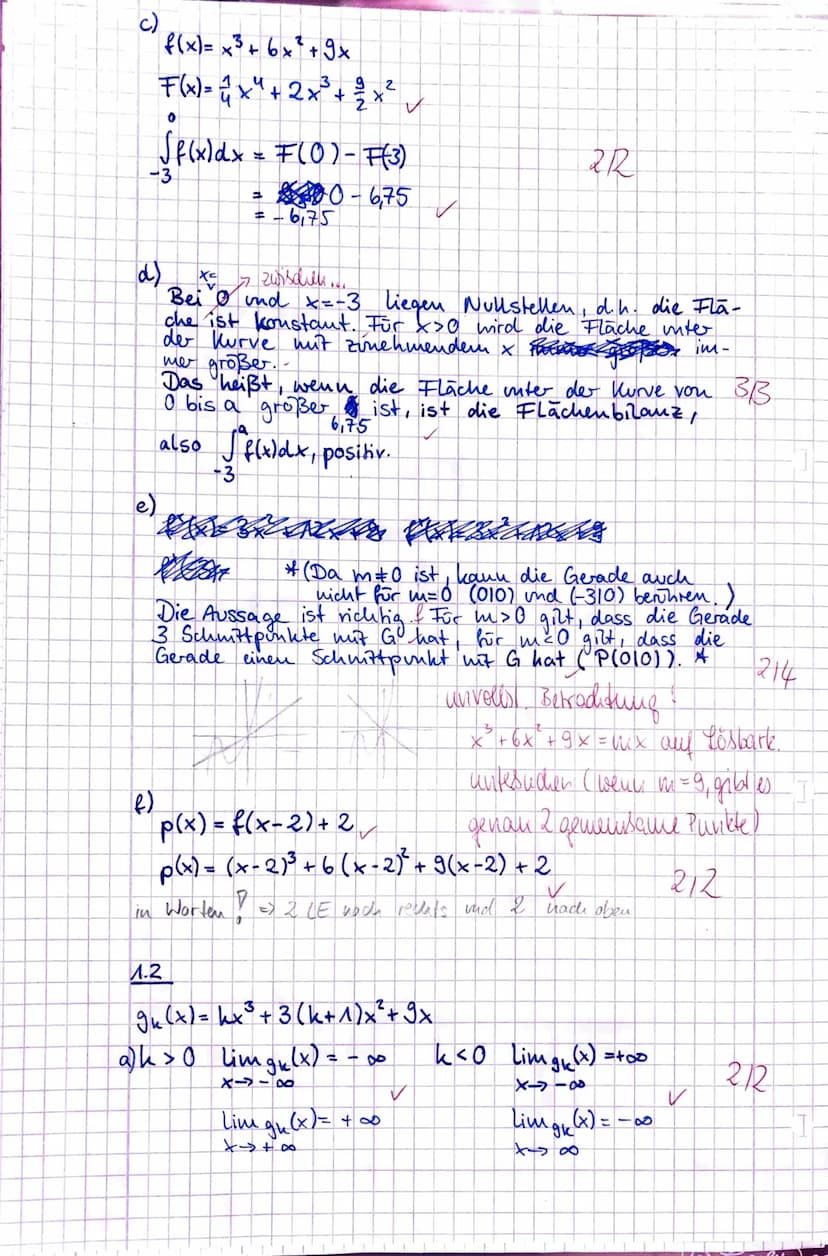 c)
f(x)= x³ + 6x² + 9x
F(x)= 1/4 x⁴ + 2x³ + 9/2 x² ✓
0
∫f(x)dx = F(0) - F(-3)
-3
2/2
= 0 - 6,75
= - 6,75 ✓
d) x= zwischen...
Bei 0 und x=-3 liegen Nullstellen, d.h. die Flä-
che ist konstant. Für x>0 wird die Fläche unter
der Kurve mit zunehmendem x im-
mer größer.
Das heißt, wenn die Fläche unter der Kurve von 3/3
0 bis a größer 6,75 ist, ist die Flächenbilanz,
also ∫f(x)dx, positiv. ✓
a
-3
e)
*(Da m≠0 ist, kann die Gerade auch
nicht für m=0 (0|0) und (-3|0) berühren.)
Die Aussage ist richtig. f Für m>0 gilt, dass die Gerade
3 Schnittpunkte mit G hat, für m<0 gilt, dass die
Gerade einen Schnittpunkt mit G hat (P(0|0)). *
2/4
unvollst. Betrachtung!
x³+6x²+9x=mx auf Lösbark.
untersuchen (wenn m=9, gibt es
genau 2 gemeinsame Punkte)
f)
p(x) = f(x-2) + 2 ✓
p(x) = (x-2)³ + 6(x-2)² + 9(x-2) + 2 ✓
2/2
in Worten! => 2 LE nach rechts und 2 nach oben
1.2
gk(x)= kx³ + 3(k+1)x² + 9x
a) k > 0 lim gk(x) = - ∞ k < 0 lim gk(x) = +∞
x→ - ∞ x→ - ∞
✓ ✓ 2/2
lim gk(x) = + ∞ lim gk(x) = - ∞
x→ + ∞ x→ ∞